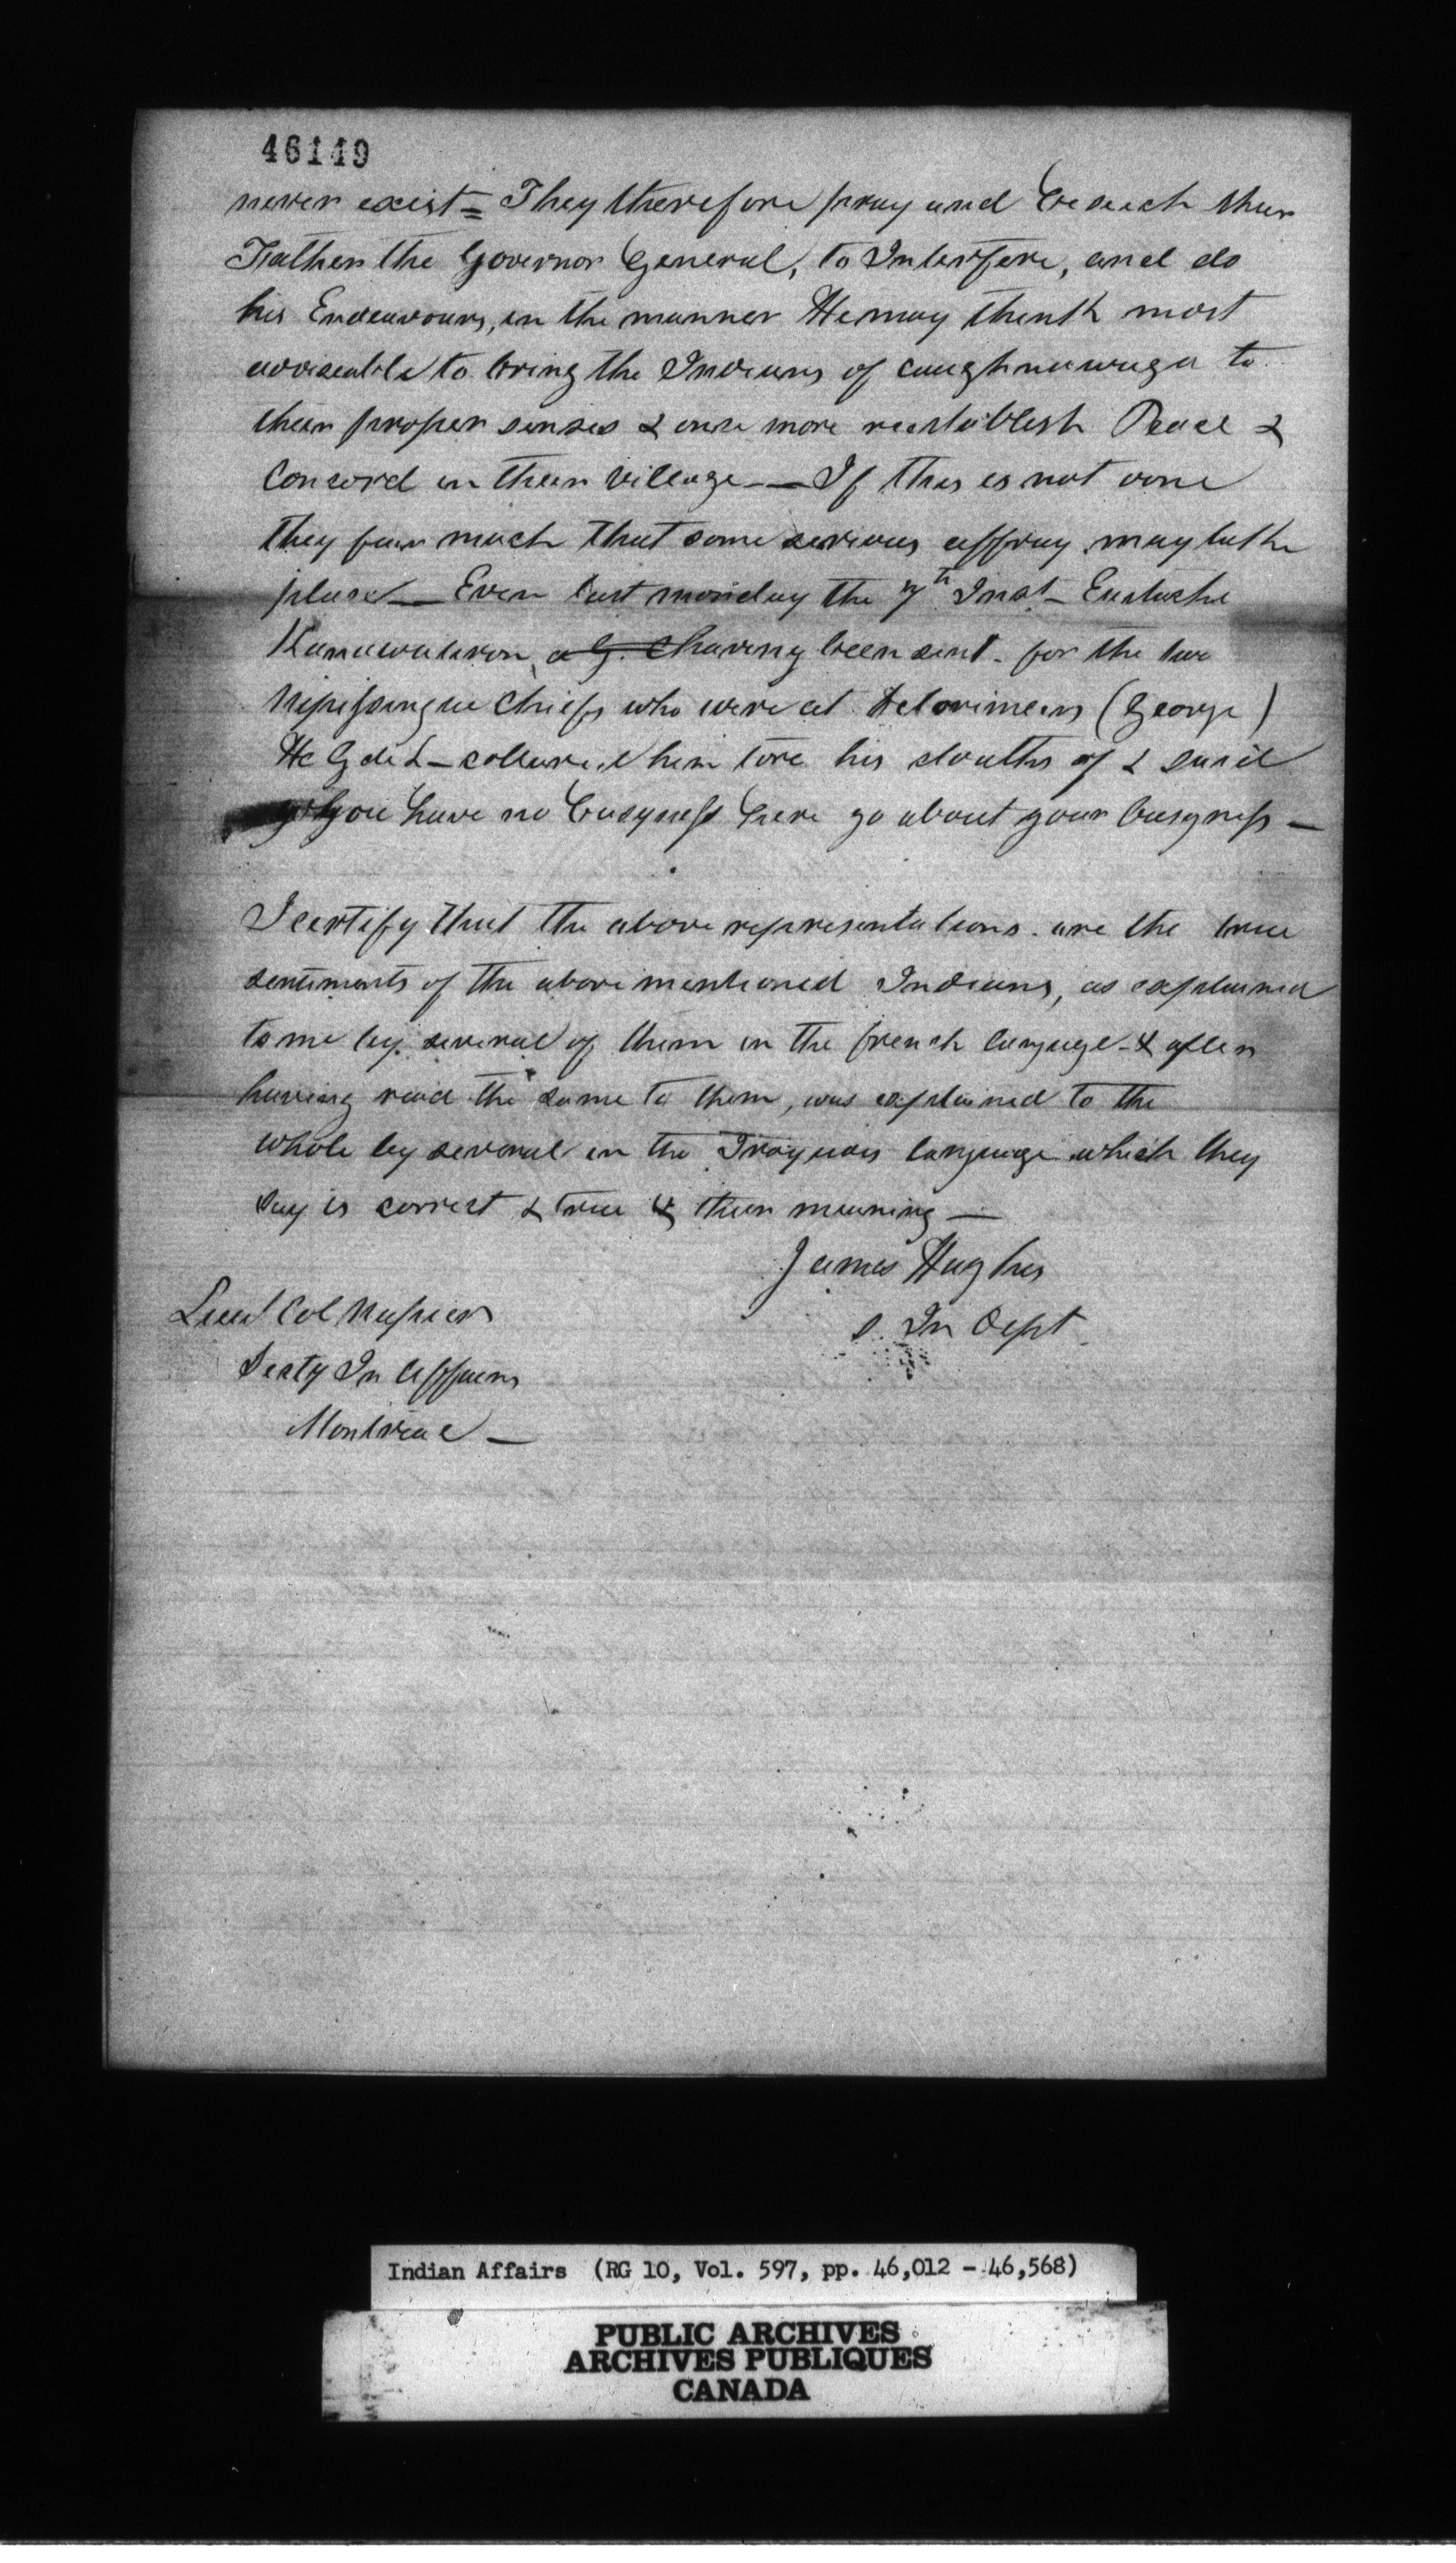 46149
never exist = They therefore pray and beseech their
Father the Governor General, to Interfere, and do
his Endeavours, in the manner He may think most
adviseable to bring the Indians of Caughnawaga to
their proper senses & once more reestablish Peace &
Concord in their village — If this is not done
they fear much that some serious affray may take
place — Even last monday the 7th Inst — Eustache
having been sent for the two
Nipissingue Chiefs who were at Delorimiers (George)
He G de L — collared him tore his cloaths of & said
you have no busyness here go about your busyness —
I certify that the above representations are the true
sentiments of the above mentioned Indians, as explained
to me by several of them in the french language — & after
having read the same to them, was explained to the
whole by several in the Iroquois language which they
say is correct & true & their meaning —
James Hughes
S. In Dept
Lieut Col Napier
Secty In Affairs
Montreal —
Indian Affairs (RG 10, Vol. 597, pp. 46,012 - 46,568)
PUBLIC ARCHIVES
ARCHIVES PUBLIQUES
CANADA